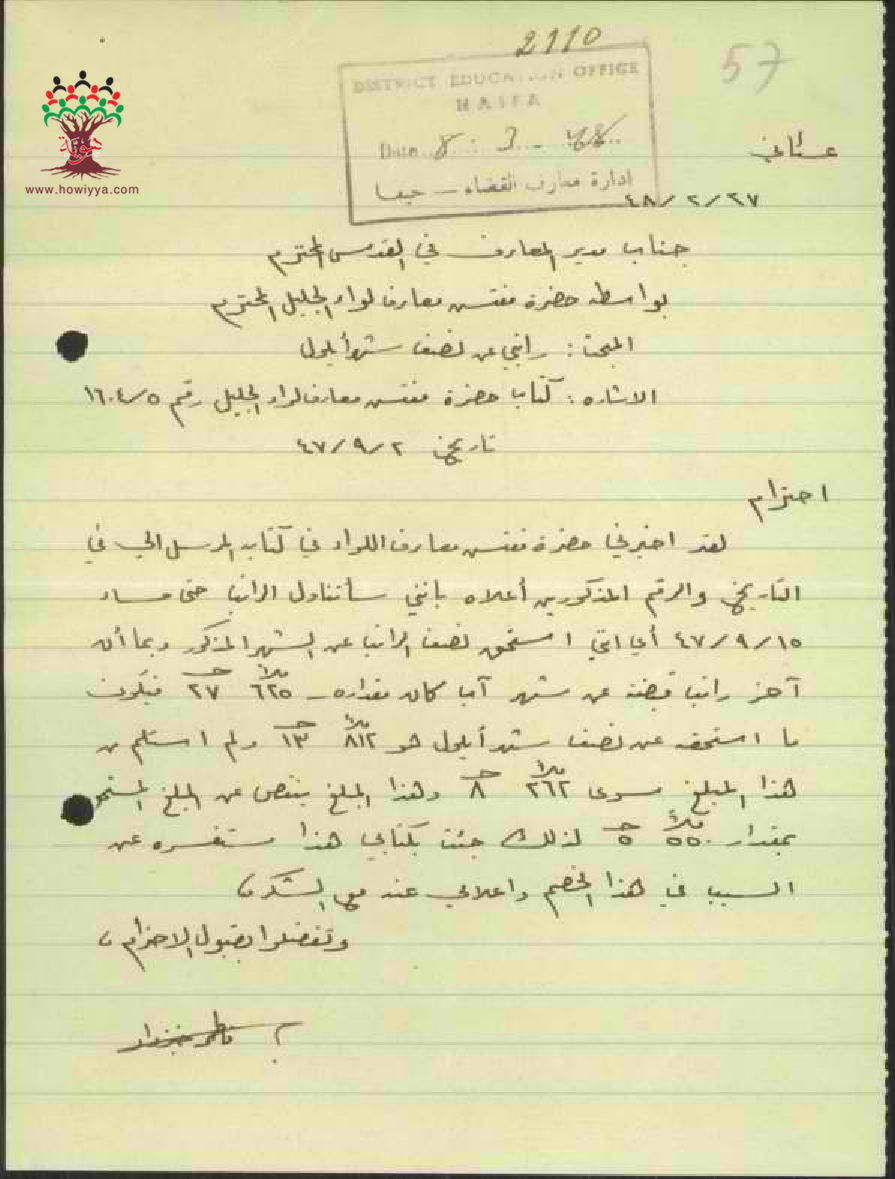 2110
57
DISTRICT EDUCATION OFFICE
HAIFA
Date 8 : 3 - 48
ادارة معارف القضاء - حيفا
هوية
www.howiyya.com
٤٨/٢/٢٧
جناب مدير المعارف في القدس المحترم
بواسطة حضرة مفتش معارف لواء الجليل المحترم
المبحث: راتبي عن نصف شهر أيلول
الاشاره: كتاب حضرة مفتش معارف لواء الجليل رقم ١٦٠٤/٥
تاريخ ٤٧/٩/٢
احترام
لقد اخبرني حضرة مفتش معارف اللواء في كتابه المرسل الي في
التاريخ والرقم المذكورين أعلاه بانني سأتناول الراتب حتى مساء
٤٧/٩/١٥ أي انني استحق نصف الراتب عن الشهر المذكور وبما أن
آخر راتب قبضته عن شهر آب كان مقداره - ٦٢٥ ملاً ٢٧ ج فيكون
ما استحقه عن نصف شهر أيلول هو ٨١٢ ملاً ١٣ ج ولم استلم من
هذا المبلغ سوى ٢٦٢ ملاً ٨ ج وهذا المبلغ ينقص عن المبلغ المستحق
بمقدار ٥٥٠ ملاً ٥ ج لذلك جئت بكتابي هذا مستفسره عن
السبب في هذا الخصم واعلامي عنه مع الشكر،
وتفضلوا بقبول الاحترام،